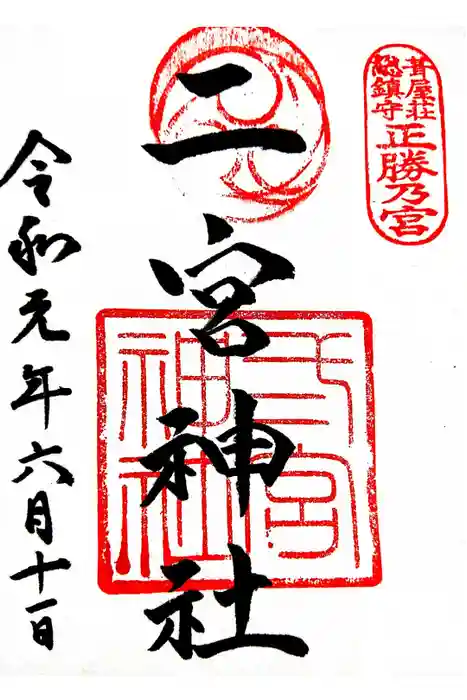 葺屋荘
総鎮守
正勝乃宮
二宮神社
弍宮
神社
令和元年六月十一日